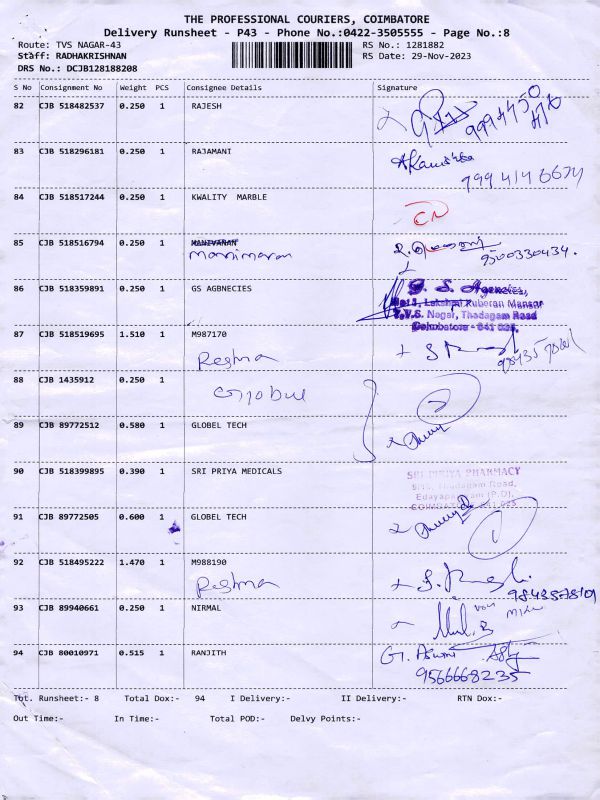 THE PROFESSIONAL COURIERS, COIMBATORE
Delivery Runsheet - P43 - Phone No.:0422-3505555 - Page No.:8
Route: TVS NAGAR-43 RS No.: 1281882
Staff: RADHAKRISHNAN RS Date: 29-Nov-2023
DRS No.: DCJB128188208
S No Consignment No Weight PCS Consignee Details Signature
82 CJB 518482537 0.250 1 RAJESH
83 CJB 518296181 0.250 1 RAJAMANI
799 414 6674
84 CJB 518517244 0.250 1 KWALITY MARBLE
85 CJB 518516794 0.250 1 MANIVARAN
Manimaran 9500330434.
86 CJB 518359891 0.250 1 GS AGBNECIES G. S. Agencies,
Lakshmi Kuberan Mansar
T.V.S. Nagar, Thadagam Road
Coimbatore - 641 025.
87 CJB 518519695 1.510 1 M987170
Reshma
88 CJB 1435912 0.250 1
Globel
89 CJB 89772512 0.580 1 GLOBEL TECH
90 CJB 518399895 0.390 1 SRI PRIYA MEDICALS SRI PRIYA PHARMACY
Thadagam Road,
COIMBATORE 641 025
91 CJB 89772505 0.600 1 GLOBEL TECH
92 CJB 518495222 1.470 1 M988190
Reshma
93 CJB 89940661 0.250 1 NIRMAL
94 CJB 80010971 0.515 1 RANJITH G. Aswni
9566668235
Tot. Runsheet:- 8 Total Dox:- 94 I Delivery:- II Delivery:- RTN Dox:-
Out Time:- In Time:- Total POD:- Delvy Points:-